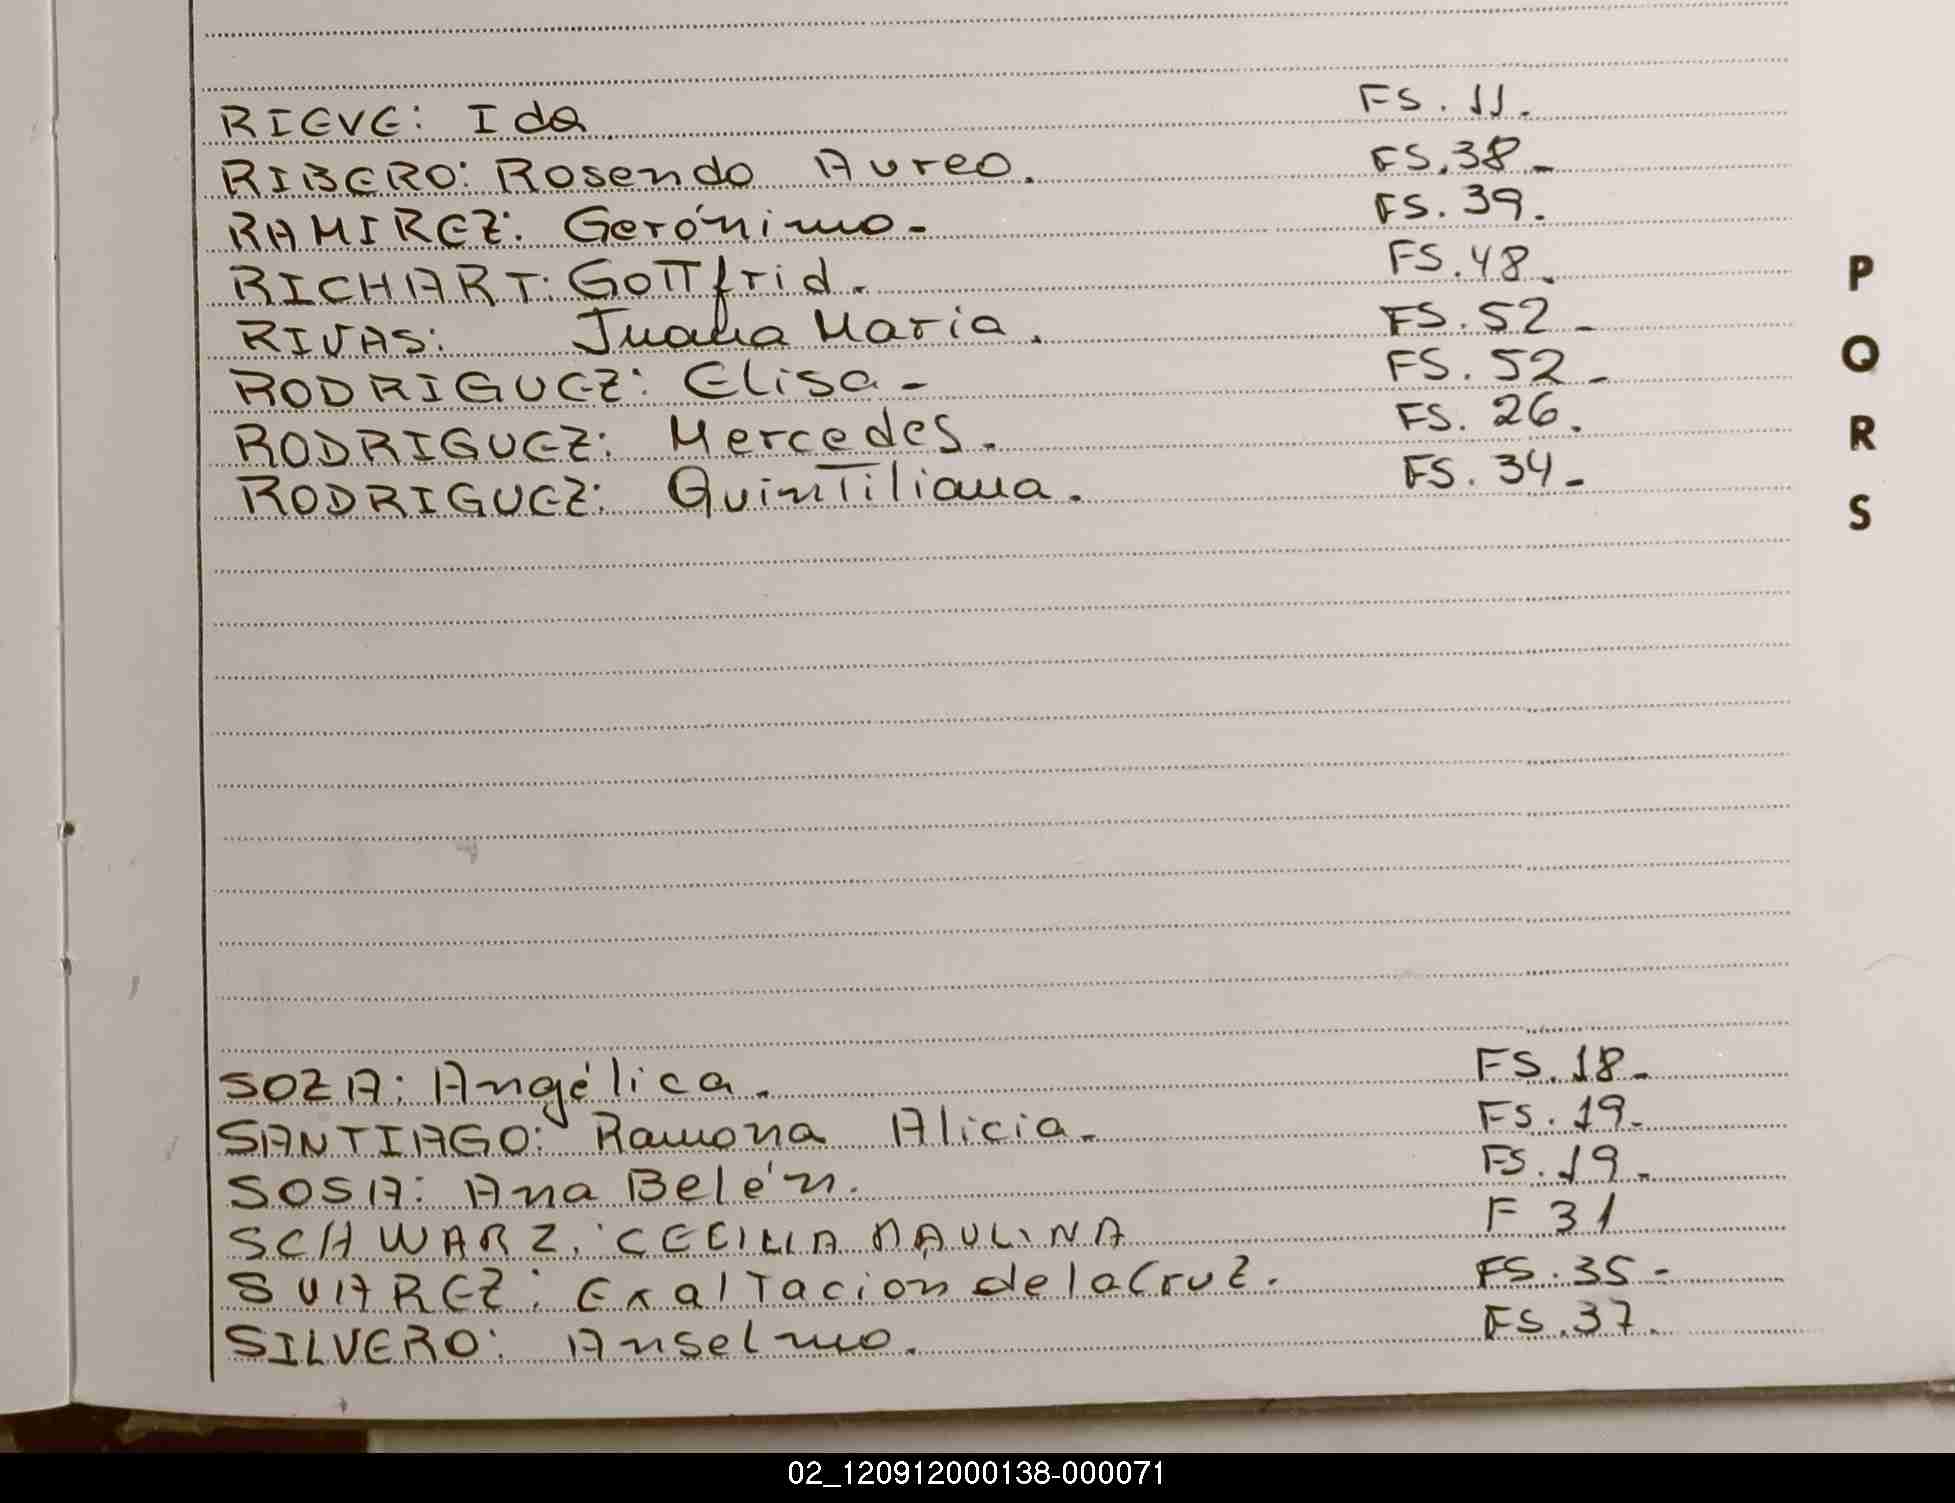 RIEVE: Ida FS. 11.
RIBERO: Rosendo Aureo. FS. 38-
RAMIREZ: Gerónimo- FS. 39.
RICHART: Gottfrid. FS. 48.
RIVAS: Juana Maria. FS. 52-
RODRIGUEZ: Elisa- FS. 52-
RODRIGUEZ: Mercedes. FS. 26.
RODRIGUEZ: Quintiliana. FS. 34-
P
Q
R
S
SOZA: Angélica. FS. 18-
SANTIAGO: Ramona Alicia- FS. 19-
SOSA: Ana Belén. FS. 19-
SCHWARZ: CECILIA PAULINA F 31
SUAREZ: Exaltacion de la Cruz. FS. 35-
SILVERO: Anselmo. FS. 37.
02_120912000138-000071